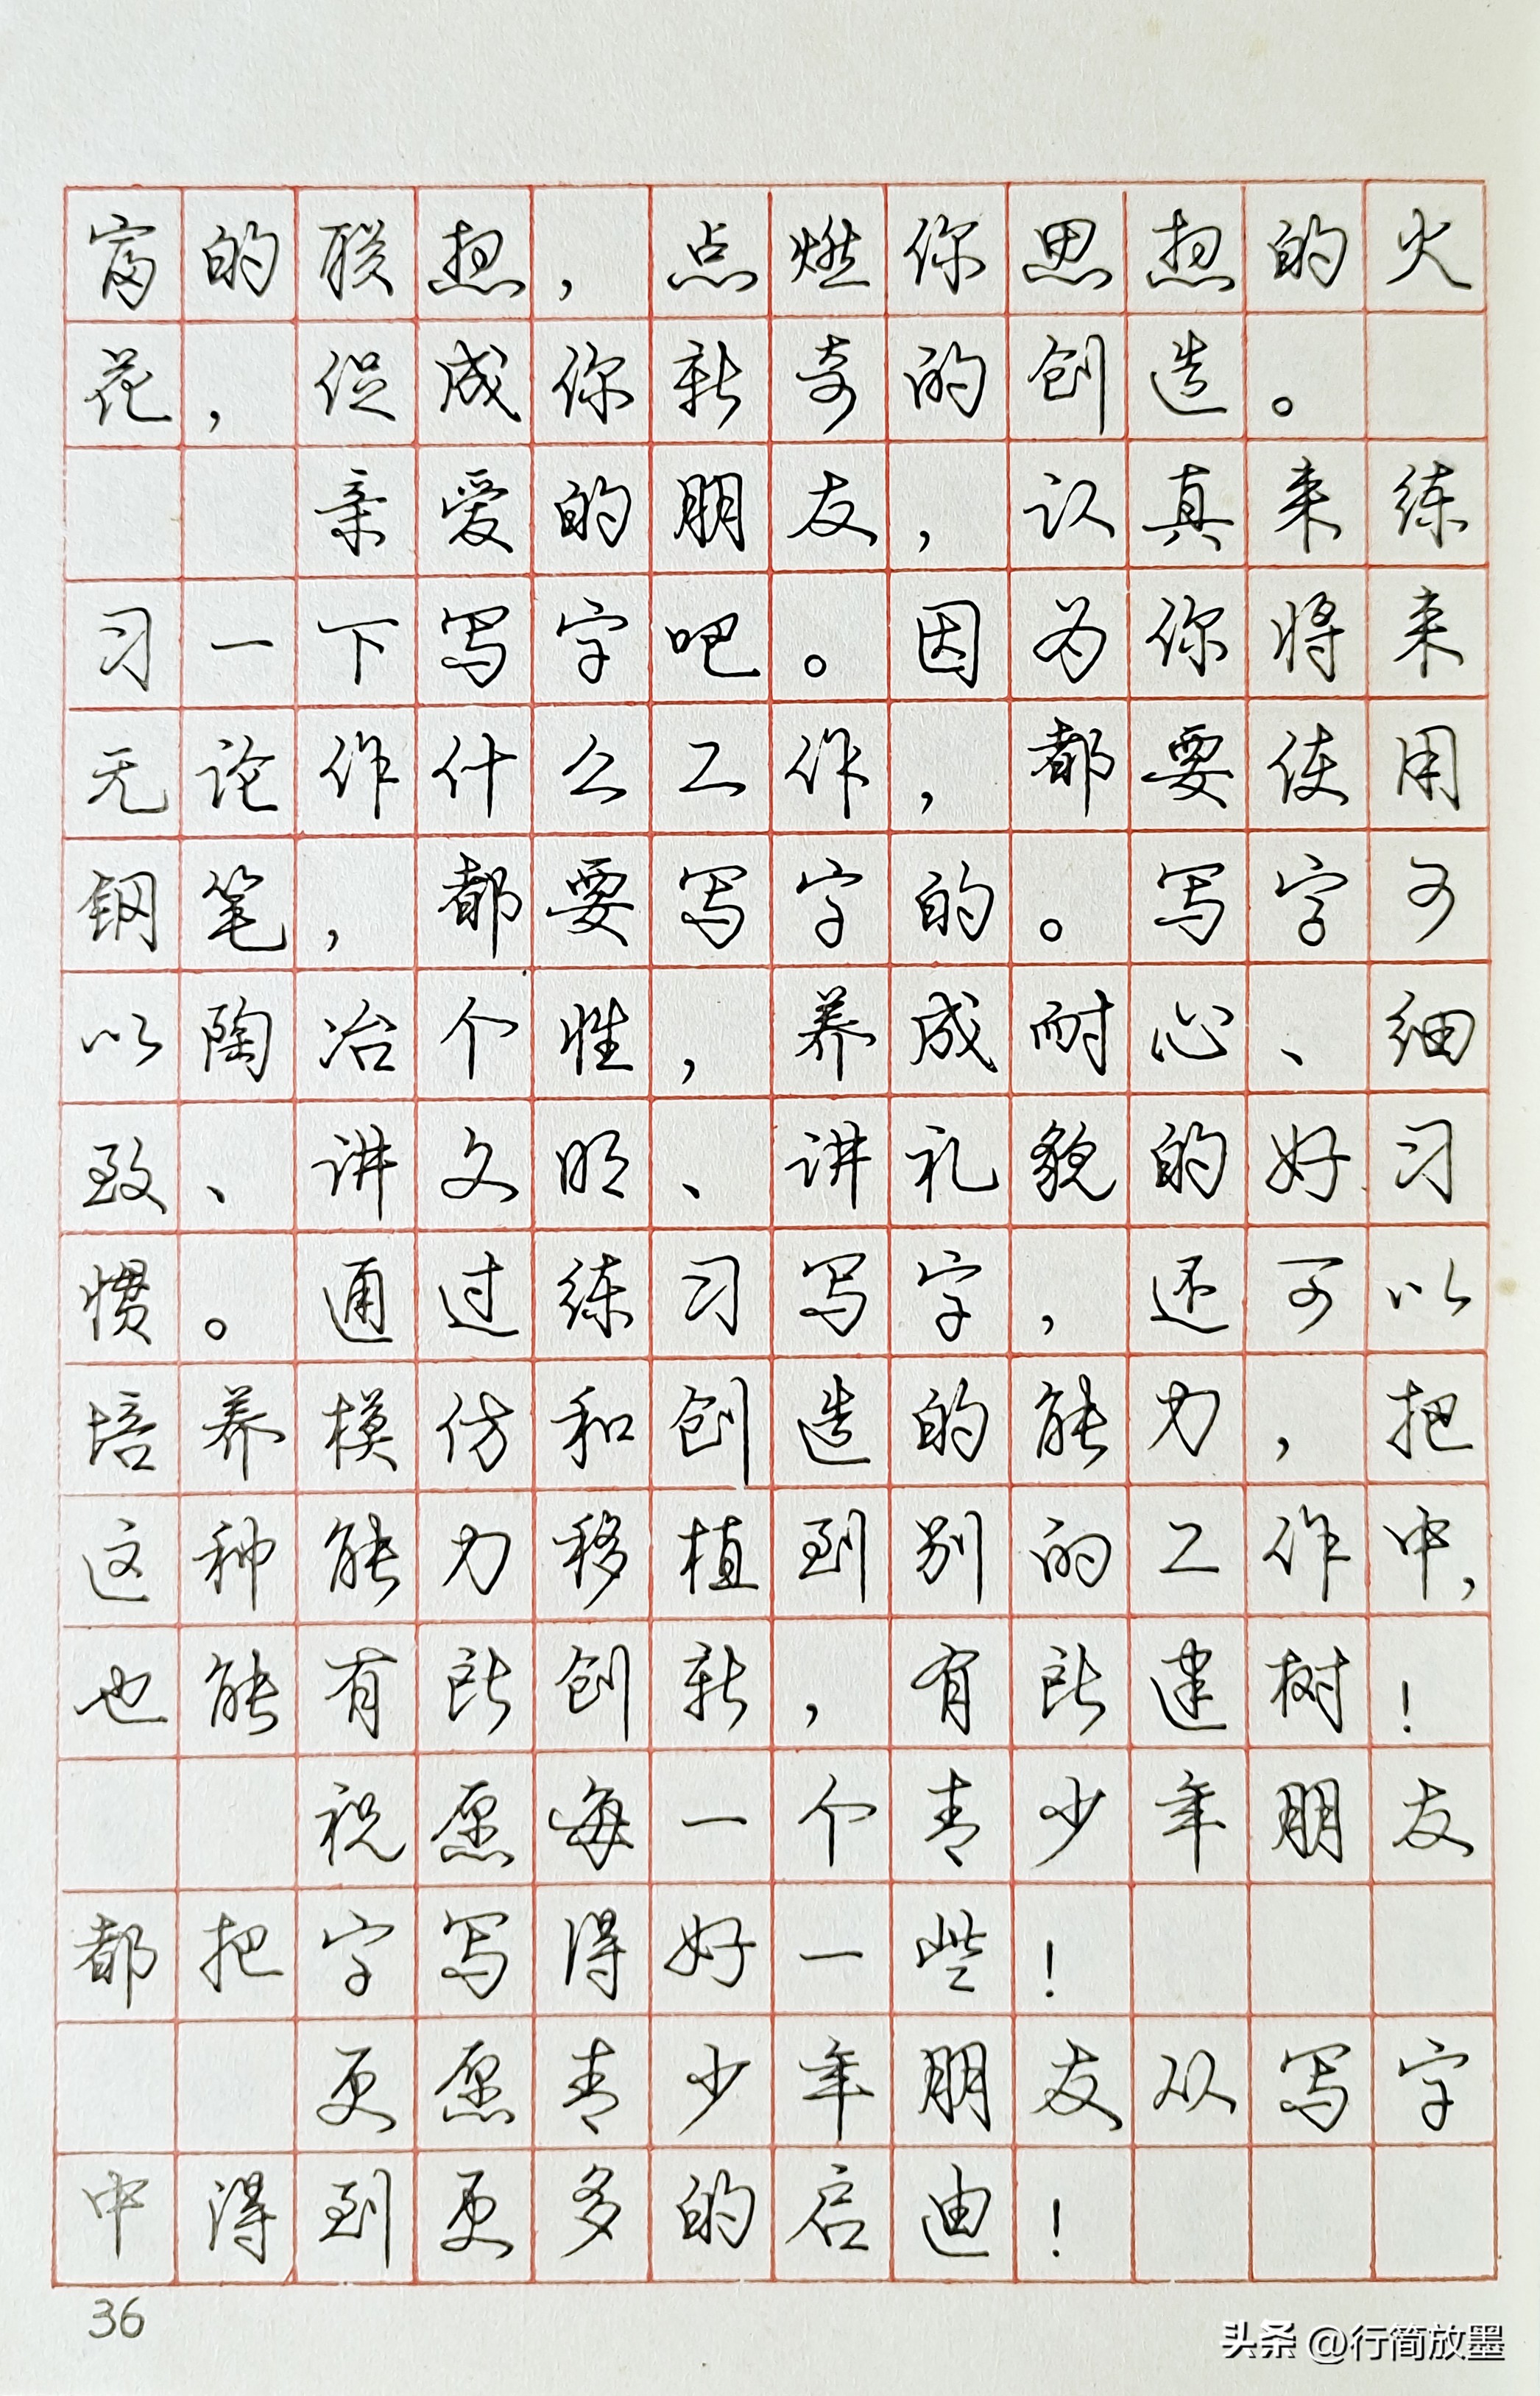 富的联想，点燃你思想的火
花，促成你新奇的创造。
亲爱的朋友，认真来练
习一下写字吧。因为你将来
无论作什么工作，都要使用
钢笔，都要写字的。写字可
以陶冶个性，养成耐心、细
致、讲文明、讲礼貌的好习
惯。通过练习写字，还可以
培养模仿和创造的能力，把
这种能力移植到别的工作中，
也能有所创新，有所建树！
祝愿每一个青少年朋友
都把字写得好一些！
更愿青少年朋友从写字
中得到更多的启迪！
36
头条 @行简放墨